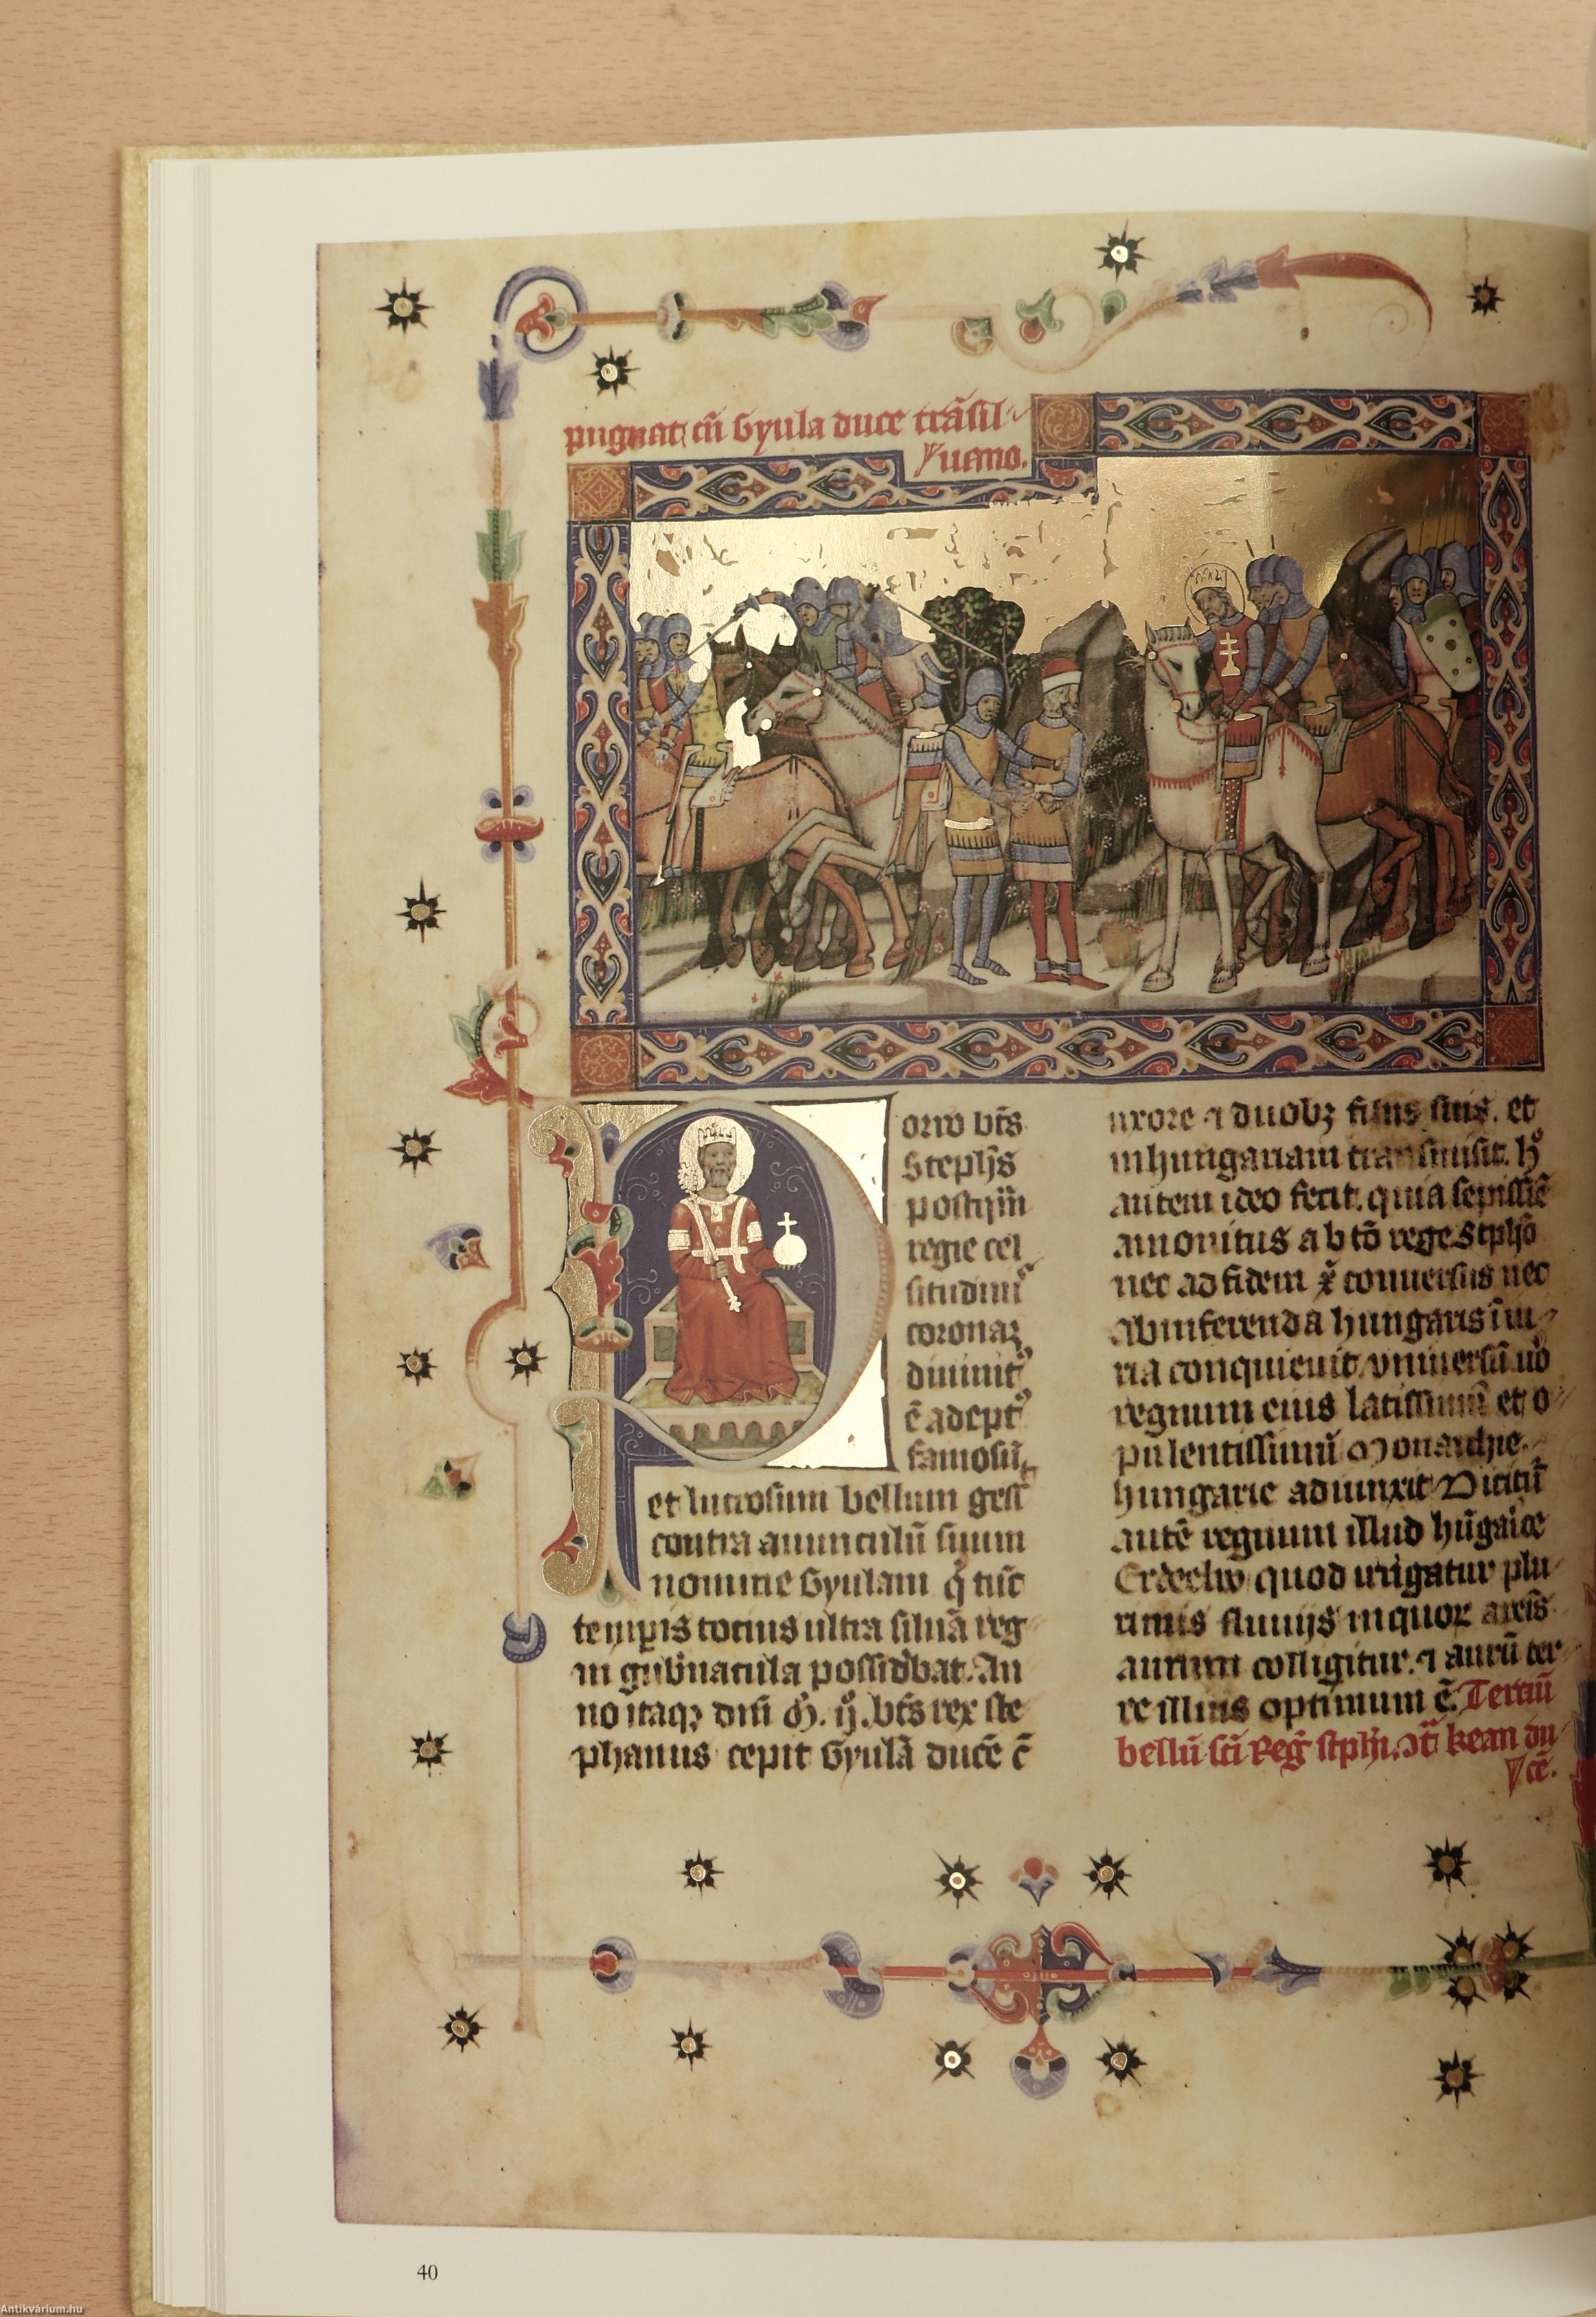 pugnat cū Gyula duce trāsil
uano.
orro bt̄s
Steph̄s
postq̄m
regie cel
situdinis
coronaꝫ
diuinitꝰ
ē adeptꝰ
famosū
et lucrosum bellum gessit
contra auunculū suum
nomine Gyulam q̄ tūc
temp̲is totius ultra siluā reg
ni gub̄nacula possidebat. An
no itaqꝫ dn̄i M. ij. bt̄s rex ste
phanus cepit Gyulā ducē c̄
uxore ⁊ duobꝫ filiis suis. et
in hungariam transmisit. h̊
autem ideo fecit. quia sepissīe
amonitus a btō rege Stph̄o
nec ad fidem x̄ conuersus nec
ab inferenda hungaris iniu
ria conquieuit. vniuersū ů
regnum eius latissimū et o
pulentissimū Monarchie
hungarie adiunxit Dicitur
autē regnum illud hūgarice
Erdeelw quod irrigatur plu
rimis fluuijs in quorꝫ areīs
aurum colligitur. ⁊ aurū ter
re illius optimum ē. Tertiū
bellū sc̄i Reḡ stph̄i. ↄt̄ kean du
cē.
40
Antikvárium.hu